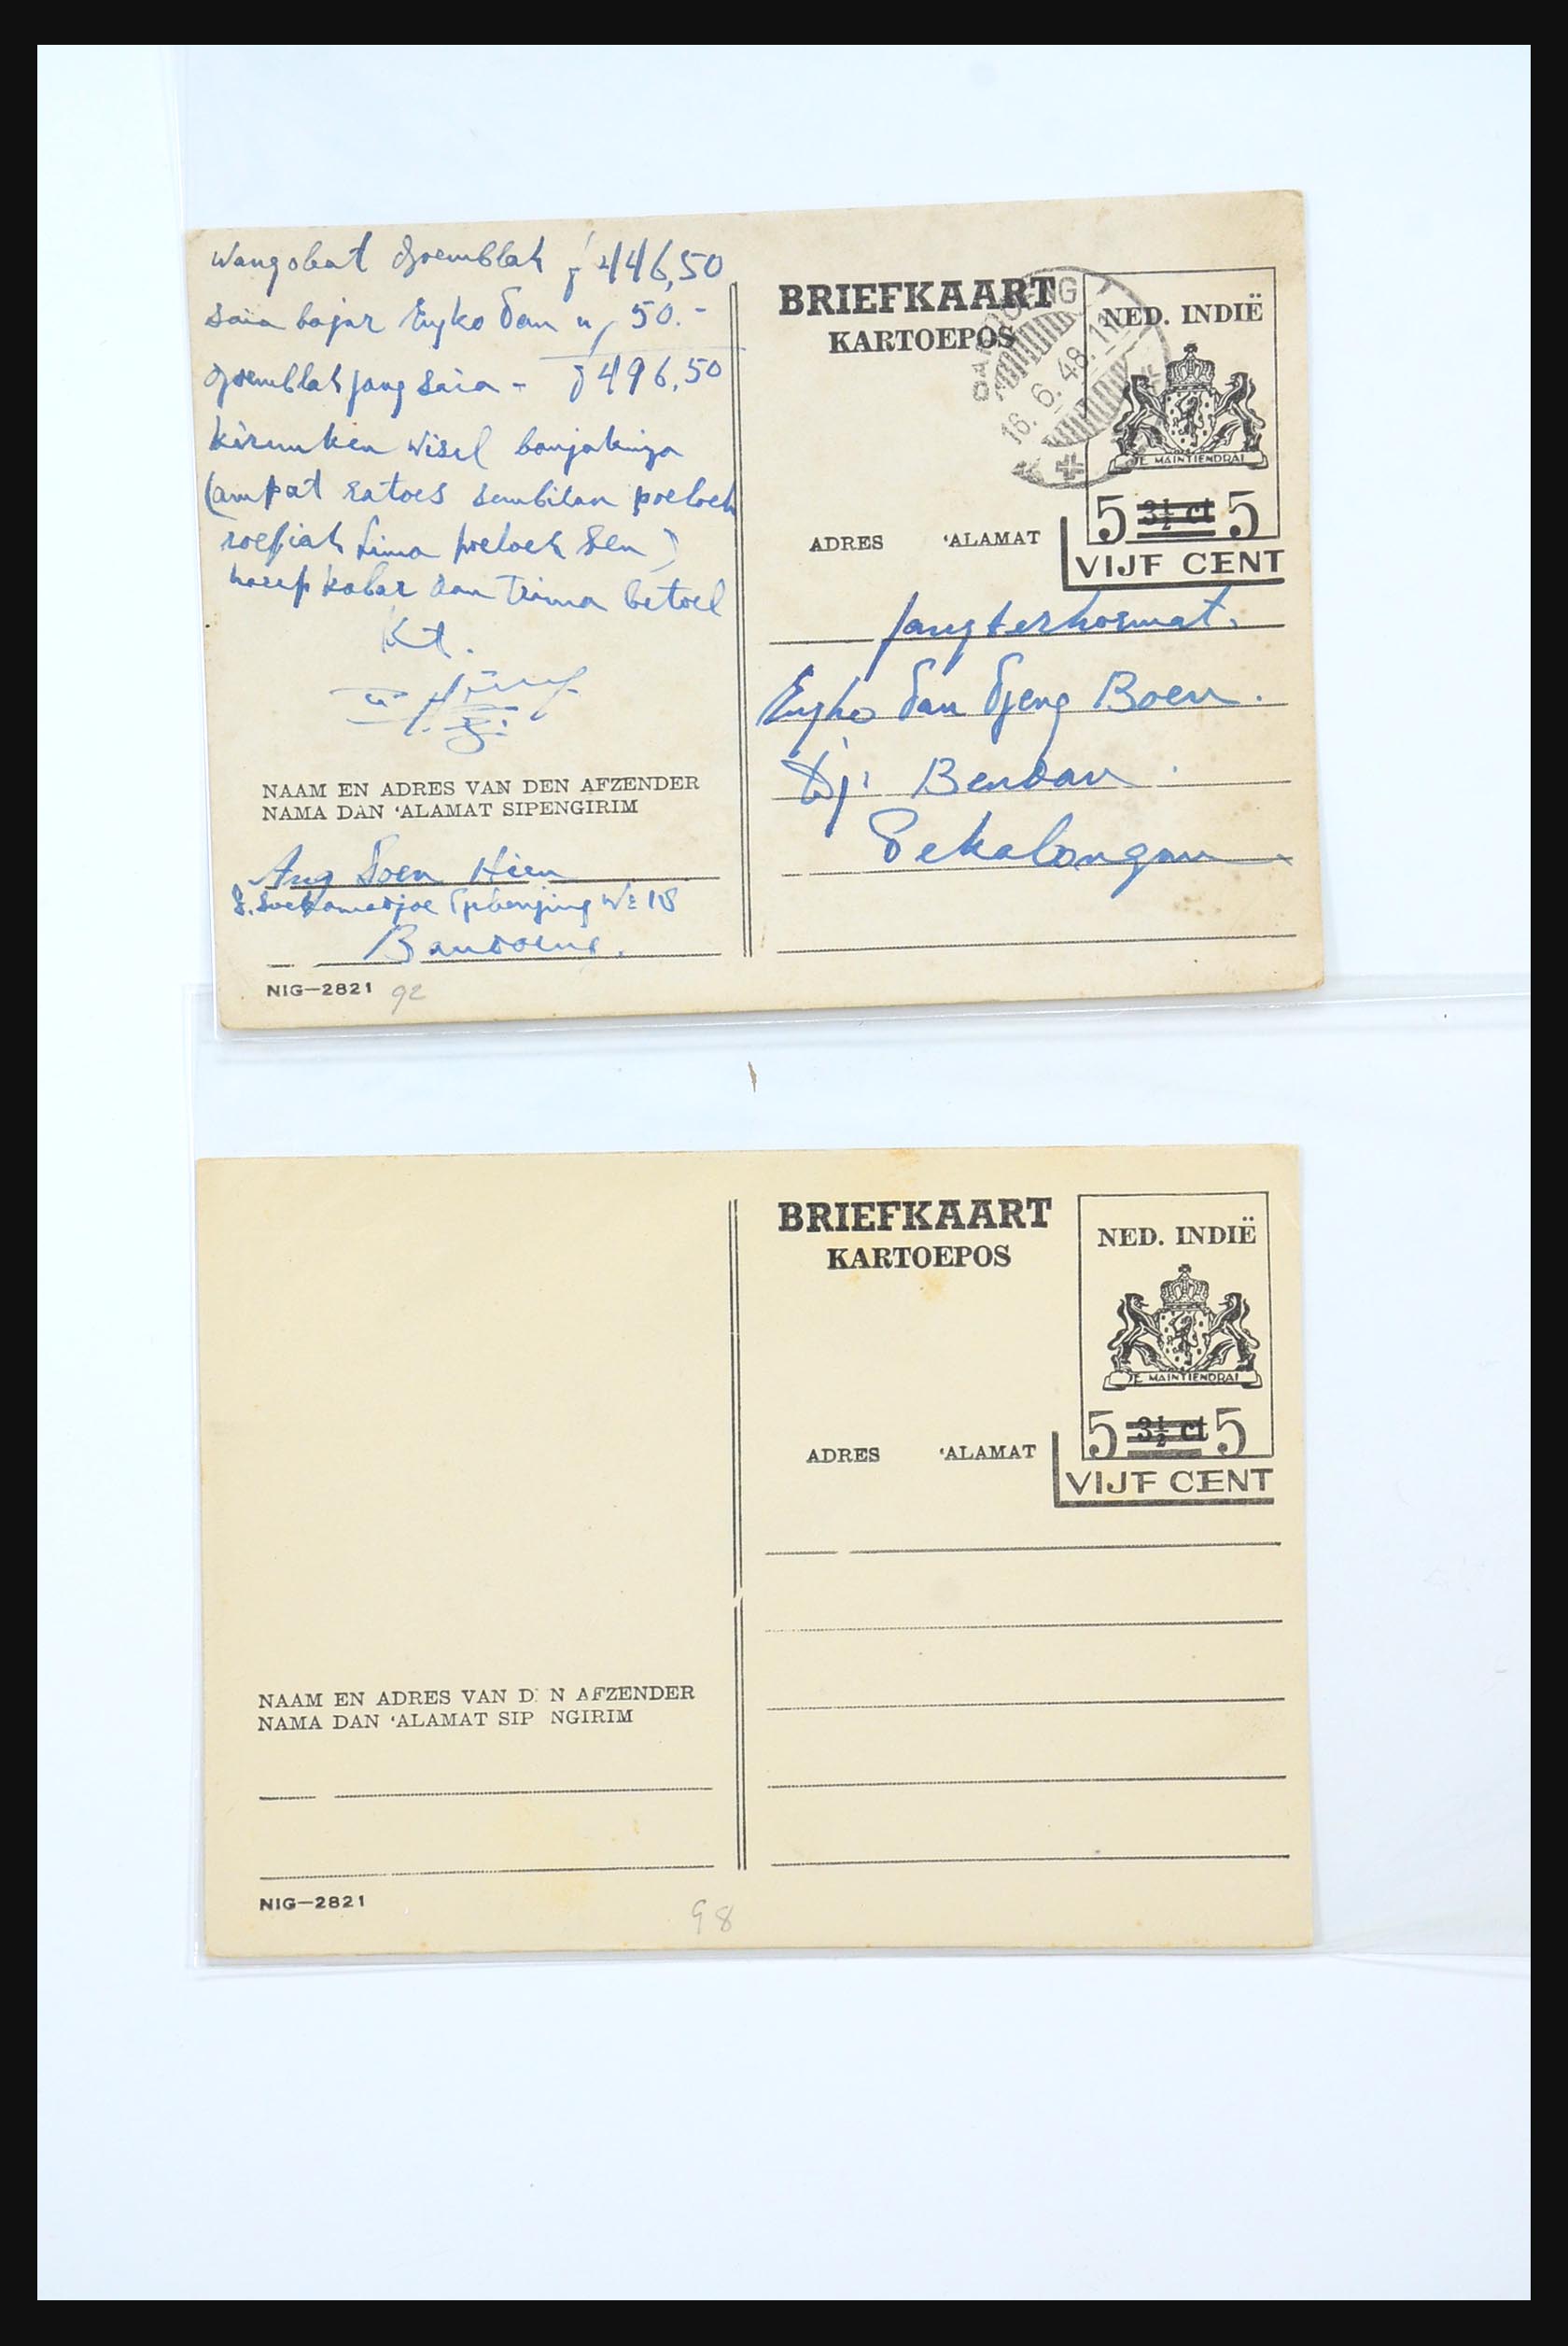 Wang obat djoemblah f 446,50
saia bajar Engko Tan „ 50.-
djoemblah jang saia - f 496,50
kirimken wisel banjaknja
(ampat ratoes sembilan poeloeh
roepiah Lima poeloeh Sen)
harep kabar dan trima betoel
Kt.
NAAM EN ADRES VAN DEN AFZENDER
NAMA DAN ‘ALAMAT SIPENGIRIM
Ang Soen Hien
Bandoeng.
NIG—2821 92
BRIEFKAART
KARTOEPOS
BANDOENG
16.6.48.11
NED. INDIË
JE MAINTIENDRAI
5 3½ ct 5
VIJF CENT
ADRES ‘ALAMAT
jang terhormat.
Engko Tan Tjeng Boen.
Dj: Bendan.
Pekalongan
BRIEFKAART
KARTOEPOS
NED. INDIË
JE MAINTIENDRAI
5 3½ ct 5
VIJF CENT
ADRES ‘ALAMAT
NAAM EN ADRES VAN D N AFZENDER
NAMA DAN ‘ALAMAT SIP NGIRIM
NIG—2821
98